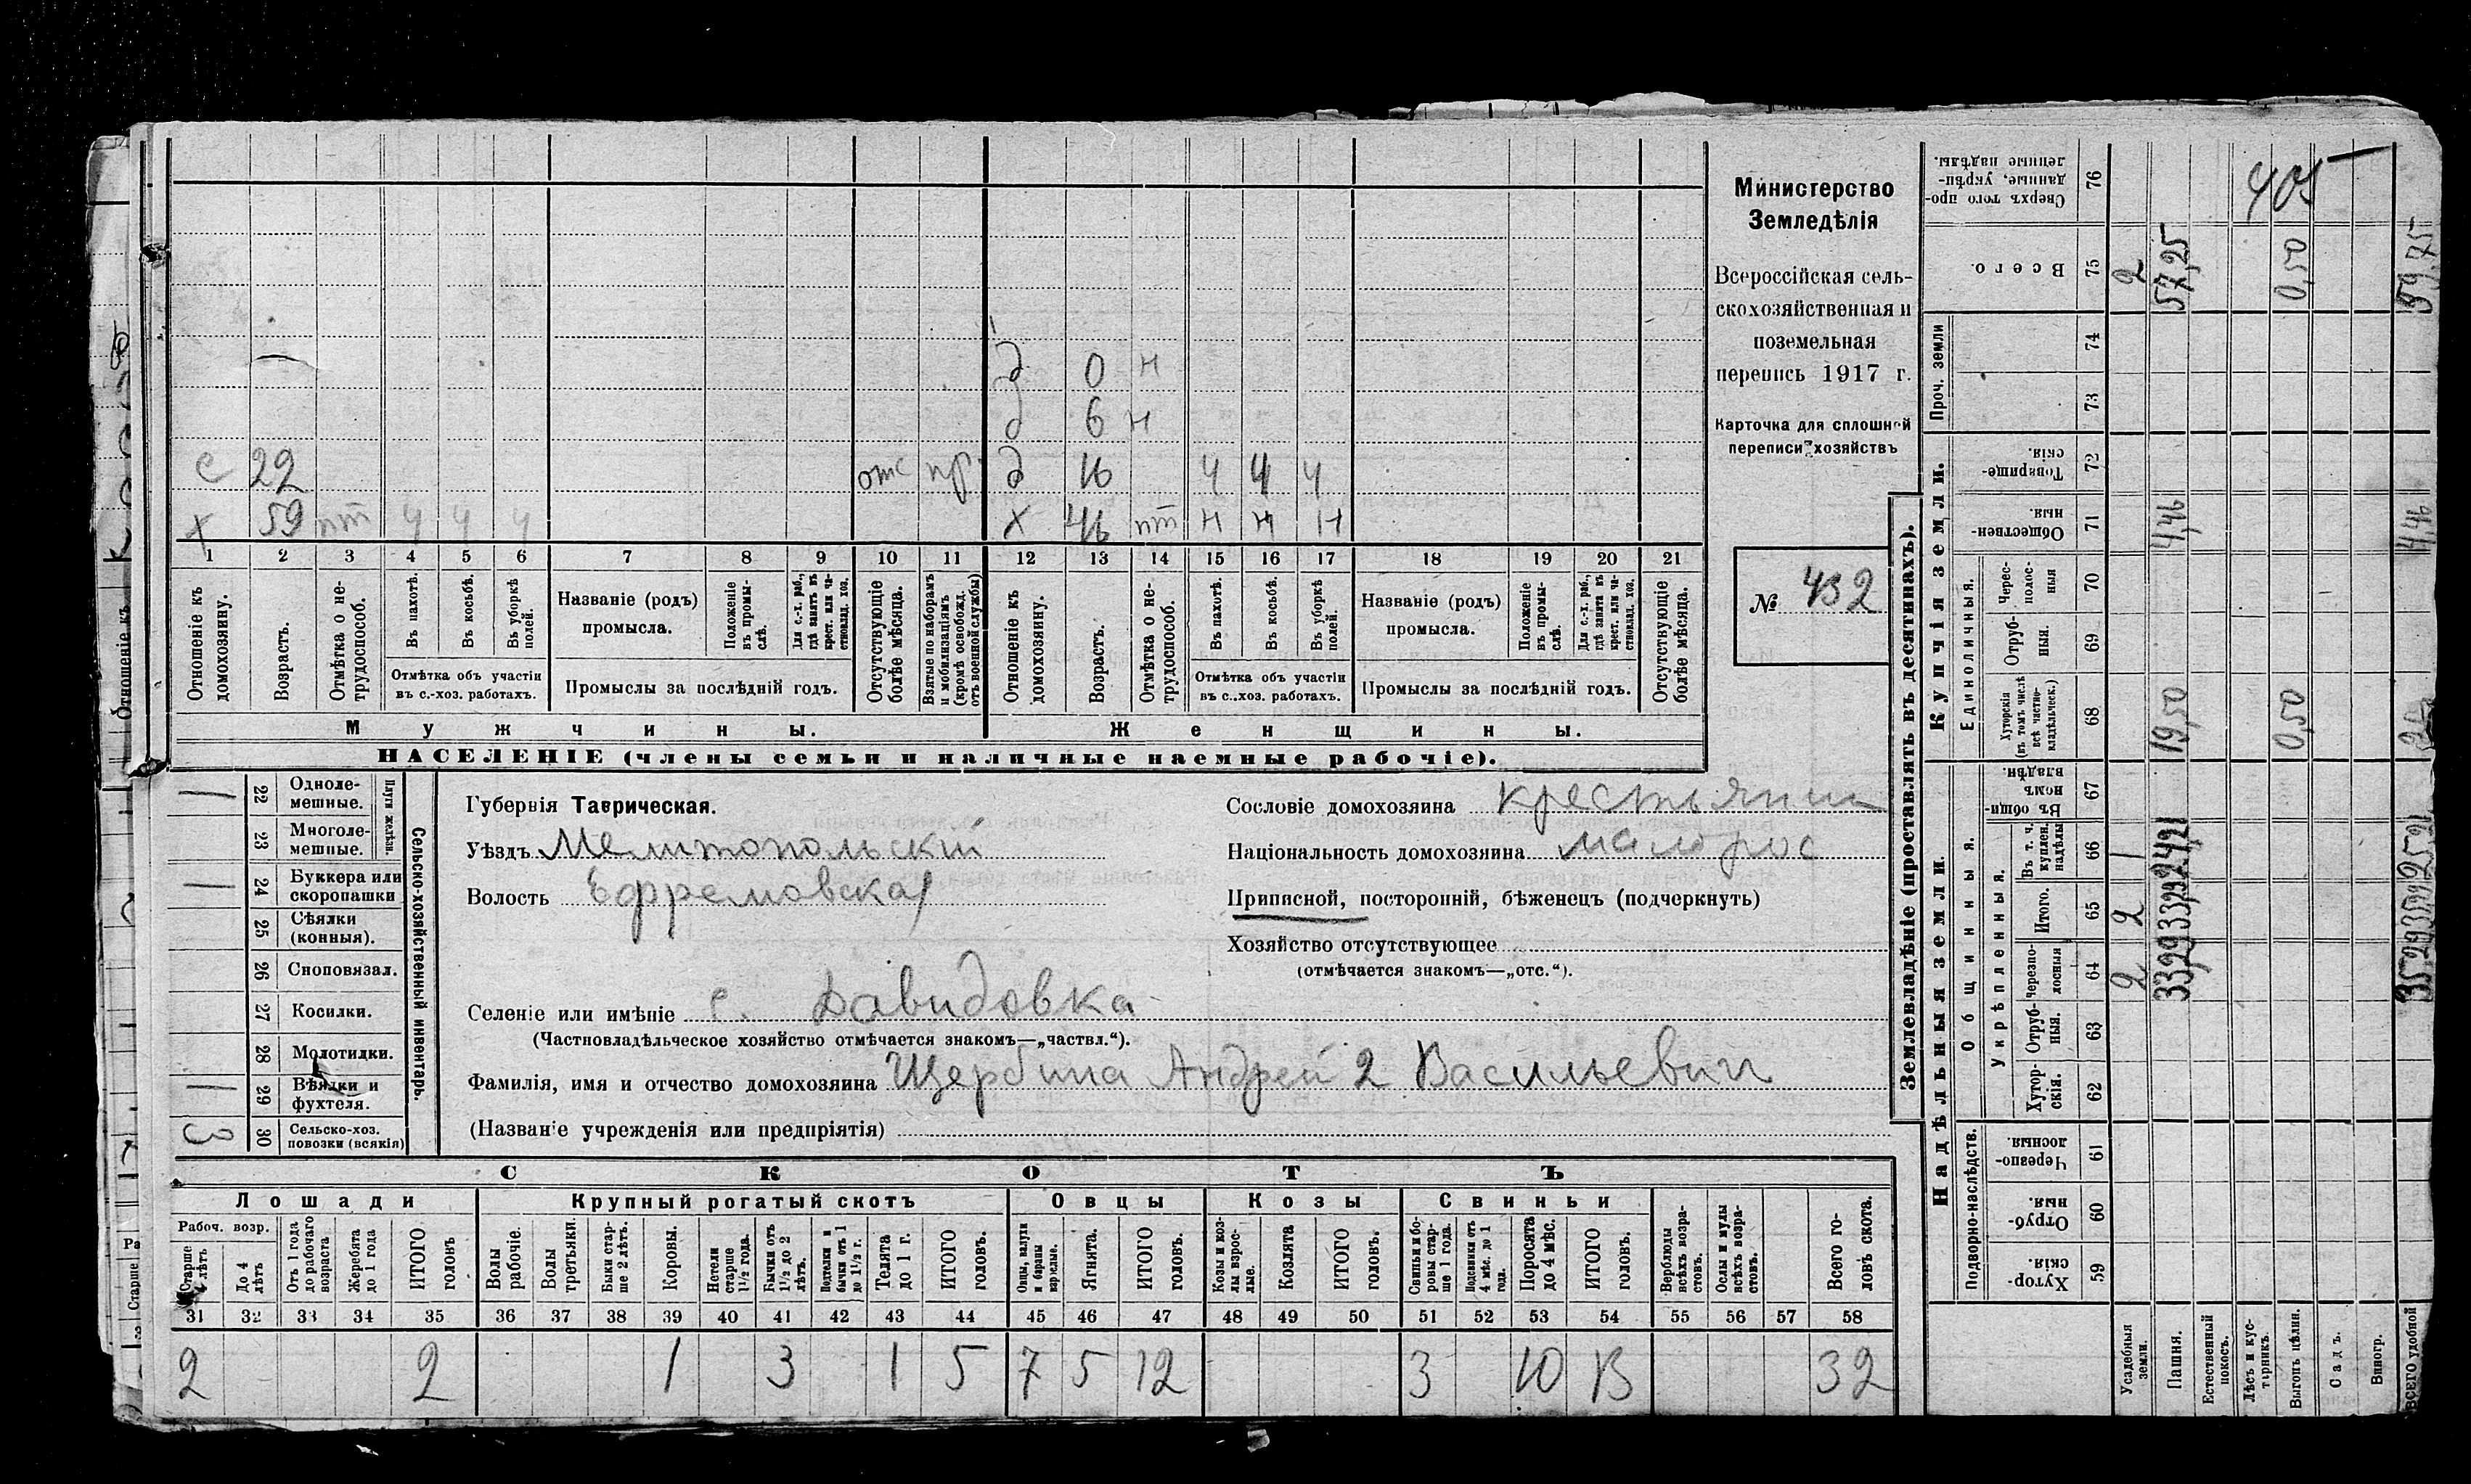 Министерство
Земледѣлія
Всероссійская сель-
скохозяйственная и
поземельная
перепись 1917 г.
Карточка для сплошной
переписи хозяйствъ
№ 432
д 0 н
д 6 н
с 22 отс пр. д 16 ч ч ч
х 59 пт ч ч ч х 46 пт н н н
1 2 3 4 5 6 7 8 9 10 11 12 13 14 15 16 17 18 19 20 21
Отношеніе къ домохозяину.
Возрастъ.
Отмѣтка о не-трудоспособ.
Въ пахотѣ.
Въ косьбѣ.
Въ уборкѣ полей.
Отмѣтка объ участіи въ с.-хоз. работахъ.
Названіе (родъ) промысла.
Положеніе въ промы-слѣ.
Для с.-х. раб., гдѣ занятъ въ крест. или ча-стновлад. хоз.
Промыслы за послѣдній годъ.
Отсутствующіе болѣе мѣсяца.
Взятые по наборамъ и мобилизаціямъ (кромѣ освобожд. отъ военной службы)
Отношеніе къ домохозяину.
Возрастъ.
Отмѣтка о не-трудоспособ.
Въ пахотѣ.
Въ косьбѣ.
Въ уборкѣ полей.
Отмѣтка объ участіи въ с.-хоз. работахъ.
Названіе (родъ) промысла.
Положеніе въ промы-слѣ.
Для с.-х. раб., гдѣ занята въ крест. или ча-стновлад. хоз.
Промыслы за послѣдній годъ.
Отсутствующіе болѣе мѣсяца.
Мужчины. Женщины.
НАСЕЛЕНІЕ (члены семьи и наличные наемные рабочіе).
Сельско-хозяйственный инвентарь.
Плуги желѣзн.
1 22 Одноле-мешные.
23 Многоле-мешные.
1 24 Буккера или скоропашки
25 Сѣялки (конныя).
26 Сноповязал.
27 Косилки.
28 Молотилки.
1 29 Вѣялки и фухтеля.
3 30 Сельско-хоз. повозки (всякія)
Губернія Таврическая.
Уѣздъ Мелитопольскій
Волость Ефремовская
Селеніе или имѣніе с. Давидовка
(Частновладѣльческое хозяйство отмѣчается знакомъ—„частвл.“).
Фамилія, имя и отчество домохозяина Щербина Андрей 2 Васильевич
(Названіе учрежденія или предпріятія)
Сословіе домохозяина крестьянин
Національность домохозяина малорос
Приписной, посторонній, бѣженецъ (подчеркнуть)
Хозяйство отсутствующее
(отмѣчается знакомъ—„отс.“).
СКОТЪ
Лошади Крупный рогатый скотъ Овцы Козы Свиньи
Рабоч. возр.
Старше 4 лѣтъ
До 4 лѣтъ
Отъ 1 года до рабочаго возраста
Жеребята до 1 года
ИТОГО головъ
Волы рабочіе.
Волы третьяки.
Быки стар-ше 2 лѣтъ.
Коровы.
Нетели старше 1½ года.
Бычки отъ 1½ до 2 лѣтъ.
Подтелки и бычки отъ 1 до 1½ г.
Телята до 1 г.
ИТОГО головъ.
Овцы, валухи и бараны взрослые.
Ягнята.
ИТОГО головъ.
Козы и коз-лы взрос-лые.
Козлята
ИТОГО головъ.
Свиньи и бо-ровы стар-ше 1 года.
Подсвинки отъ 4 мѣс. до 1 года.
Поросята до 4 мѣс.
ИТОГО головъ.
Верблюды всѣхъ возра-стовъ.
Ослы и мулы всѣхъ возра-стовъ.
Всего го-ловъ скота.
31 32 33 34 35 36 37 38 39 40 41 42 43 44 45 46 47 48 49 50 51 52 53 54 55 56 57 58
2 2 1 3 1 5 7 5 12 3 10 13 32
Землевладѣніе (проставлять въ десятинахъ).
Надѣльныя земли. Купчія земли. Проч. земли
Подворно-наслѣдств.
Общинныя.
Укрѣпленныя.
Единоличныя.
Хутор-скія. 59
Отруб-ныя. 60
Черезпо-лосныя. 61
Хутор-скія. 62
Отруб-ныя. 63
Черезпо-лосныя 64
Итого. 65
Въ т. ч. куплен. надѣлы 66
Въ общи-номъ владѣн. 67
Хуторскія (въ томъ числѣ всѣ частно-владѣльческ.) 68
Отруб-ныя. 69
Черес-полос-ныя 70
Обществен-ныя. 71
Товарище-скія. 72
73
74
Всего. 75
Сверхъ того про-данные, укрѣп-ленные надѣлы. 76
Усадебныя земли. 2 2 1 2
Пашня. 33,29 33,29 24,21 19,50 4,46 57,25
Естественный покосъ.
Лѣсъ и кус-тарникъ.
Выгонъ цѣлин. 0,50 0,50
Садъ.
Виногр.
Всего удобной 35,29 35,29 25,21 4,46 59,75
405